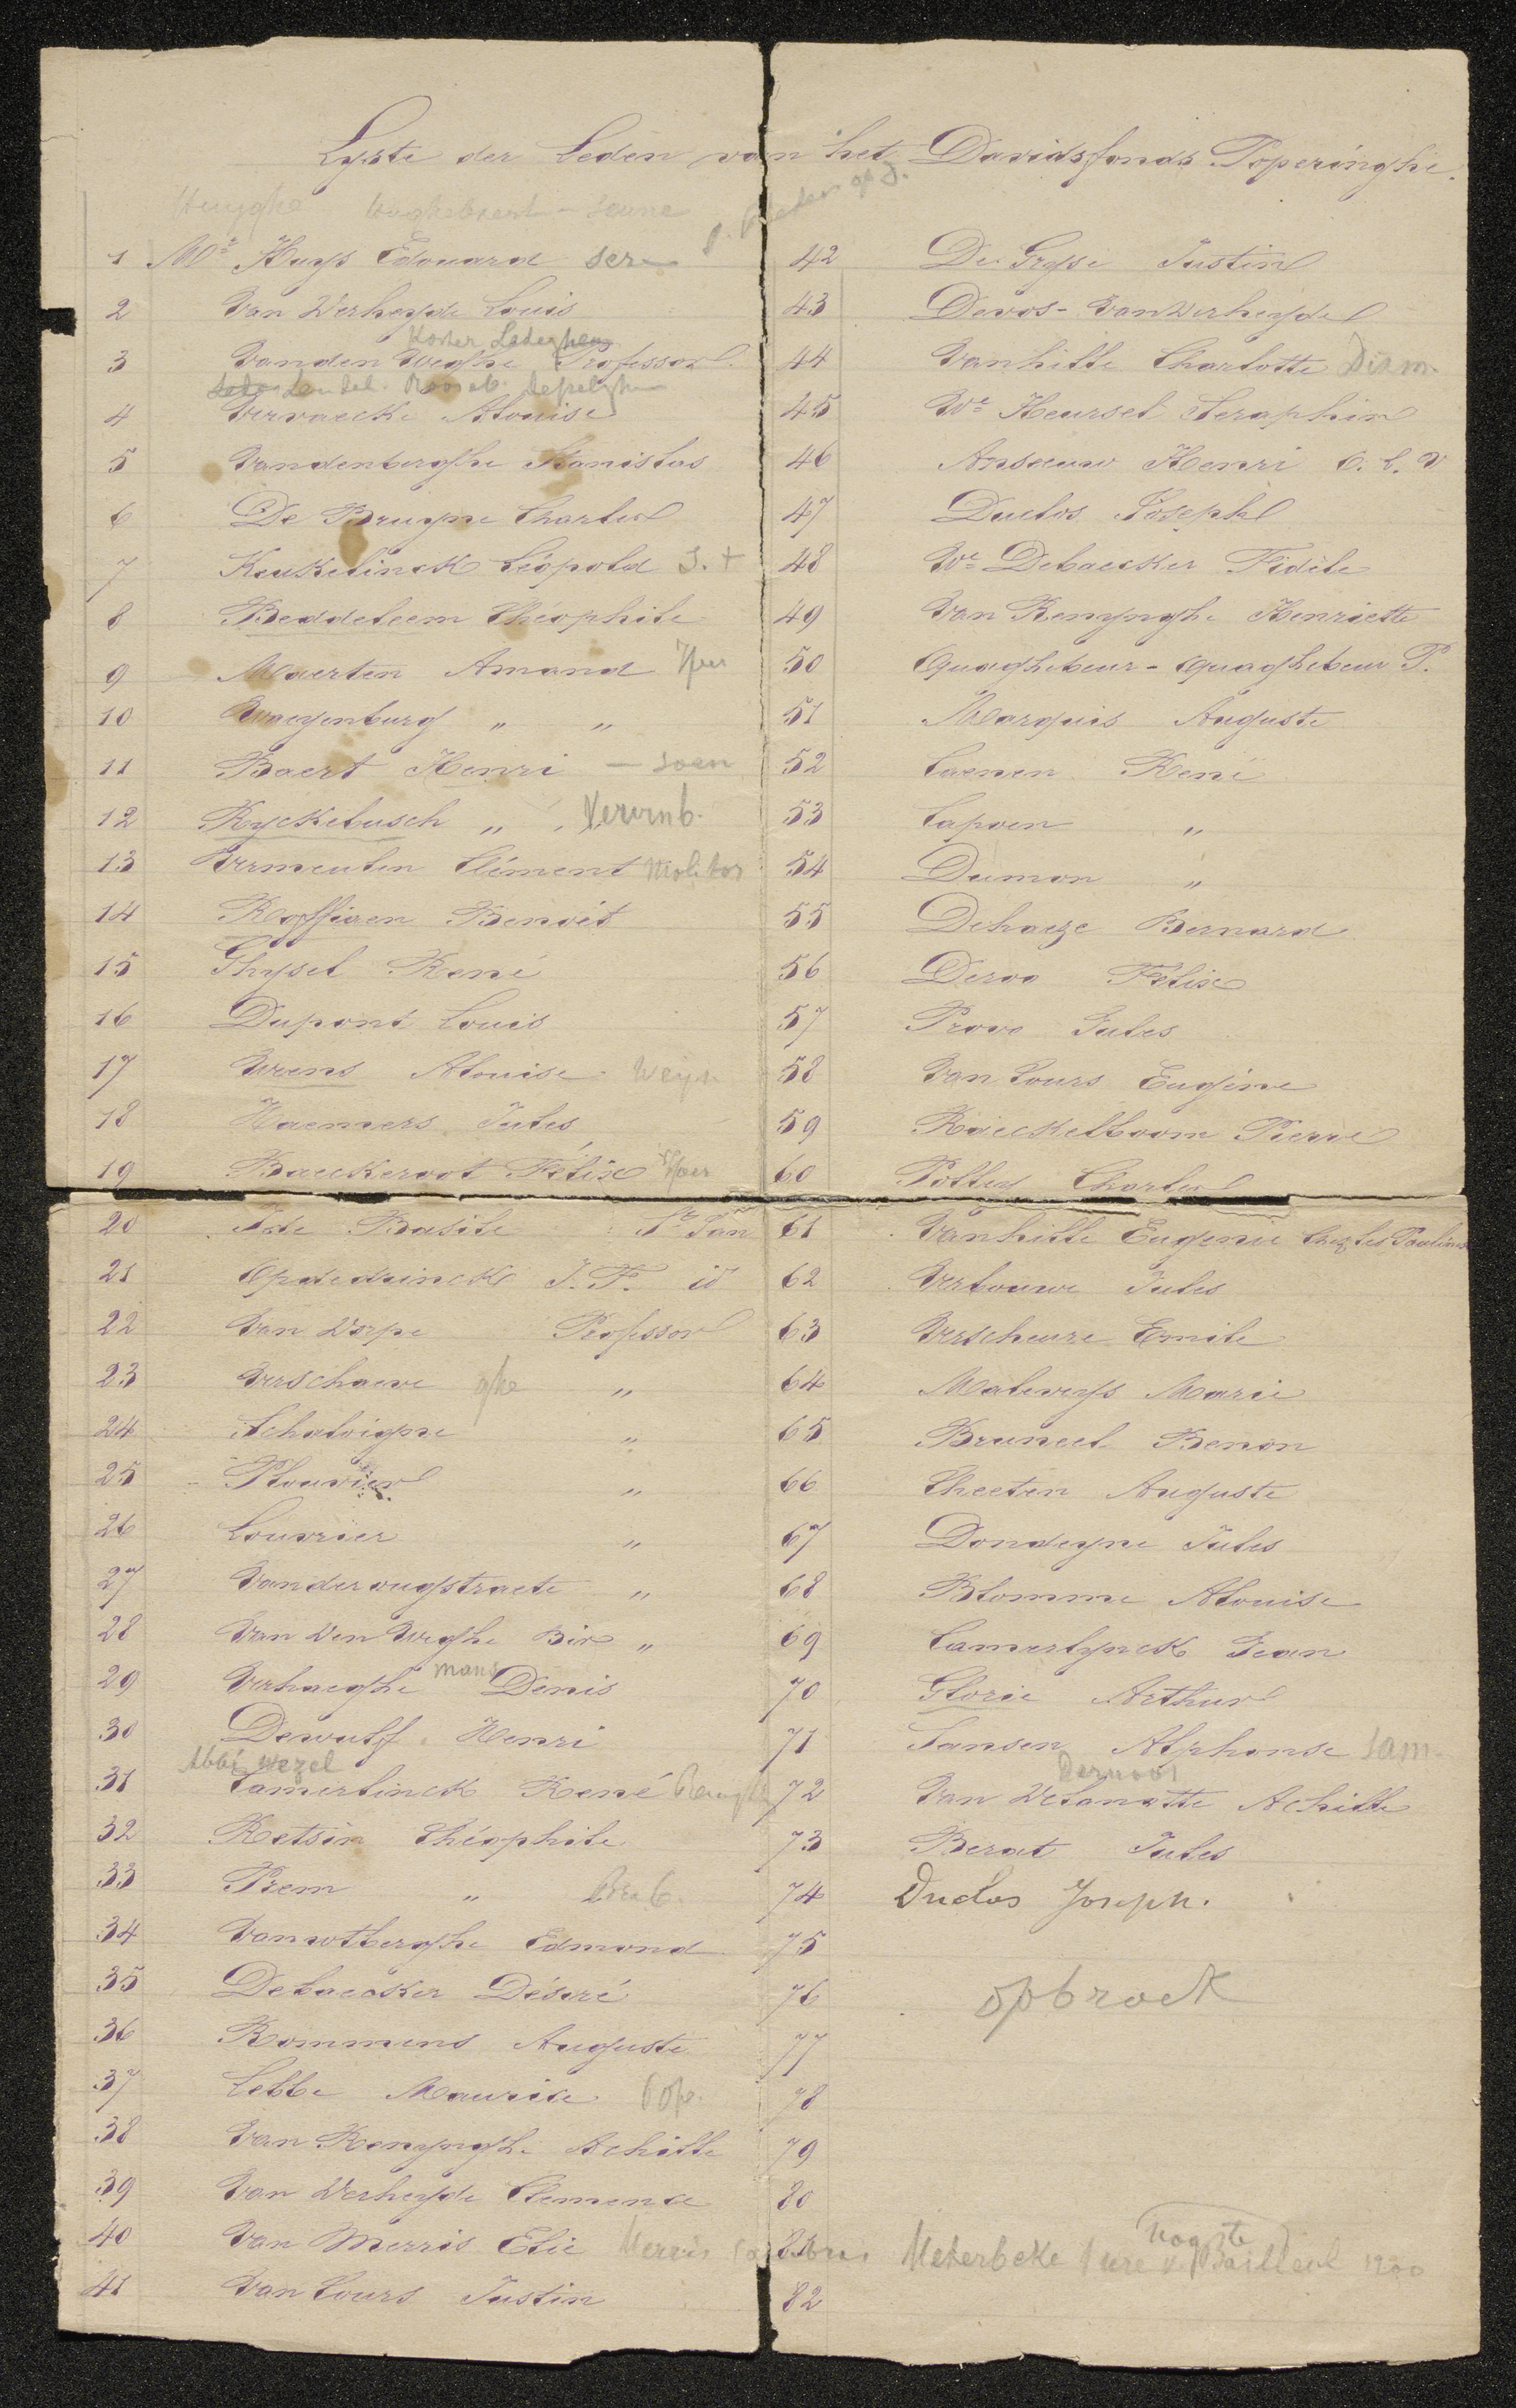 Lyste der Leden van het Davidsfonds Poperinghe.
1 Mr Huys Edouard
2 Van Werheyde Louis
3 Vanden Weghe Professor
4 Vervaecke Alouise
5 Vandenberghe Stanislas
6 De Bruyne Charles
7 Keukelinck Léopold S. +
8 Beddeleem Théophile
9 Maerten Amand Yper
10 Waeyenburg " "
11 Baert Henri — soen
12 Ryckebusch "
13 Vermeulen Clément Molitor
14 Roffiaen Benoit
15 Ghysel René
16 Dupont Louis
17 Wrens Alouise Weyn
18 Haemers Jules
19 Baeckeroot Félix Yper
20 Ide Basile St Jan
21 Opdedrinck J. F. id
22 Van Worpe Professor
23 Verschaeve ghe "
24 Schaloigne "
25 Plouvier "
26 Louvrier "
27 Vanderougstraete "
28 Van den Weghe Bir "
29 Verhaeghe mans Denis
30 Dewulf Henri
Abbé Wezel
31 Camerlinck René
32 Retsin Théophile
33 Prem "
34 Vanwtberghe Edmond
35 Debaecker Désiré
36 Rommens Auguste
37 Lebbe Maurice Pop.
38 Van Renynghe Achille
39 Van Werheyde Clemence
40 Van Merris Elie Merris
41 Van Cours Justin
42 De Gryse Justin
43 Devos - Vanwerheyde
44 Vanhille Charlotte Dixm.
45 We Heursel Seraphin
46 Anseeuw Henri
47 Duclos Joseph
48 We Debaecker Fidéle
49 Van Renynghe Henriette
50 Quaghebeur - Quaghebeur P.
51 Marquis Auguste
52 Caenen René
53 Capoen "
54 Dumon "
55 Dehaeze Bernard
56 Deroo Félix
57 Provo Jules
58 Van Cours Eugéne
59 Raeckelboom Pierre
60 Pottier Charles
61 Vanhille Eugenie Chez les Paulines
62 Verbouwe Jules
63 Verscheure Emile
64 Maleweys Marie
65 Bruneel Benon
66 Cheeten Auguste
67 Dondeyne Jules
68 Blomme Alouise
69 Camerlynck Jean
70 Glorie Arthur
71 Jansen Alphonse Sam.
72 Van Welanotte Achille
73 Berat Jules
74 Duclos Joseph.
75
76 opbrock
77
78
79
80
81 Meterbeke Bailleul 1930
82